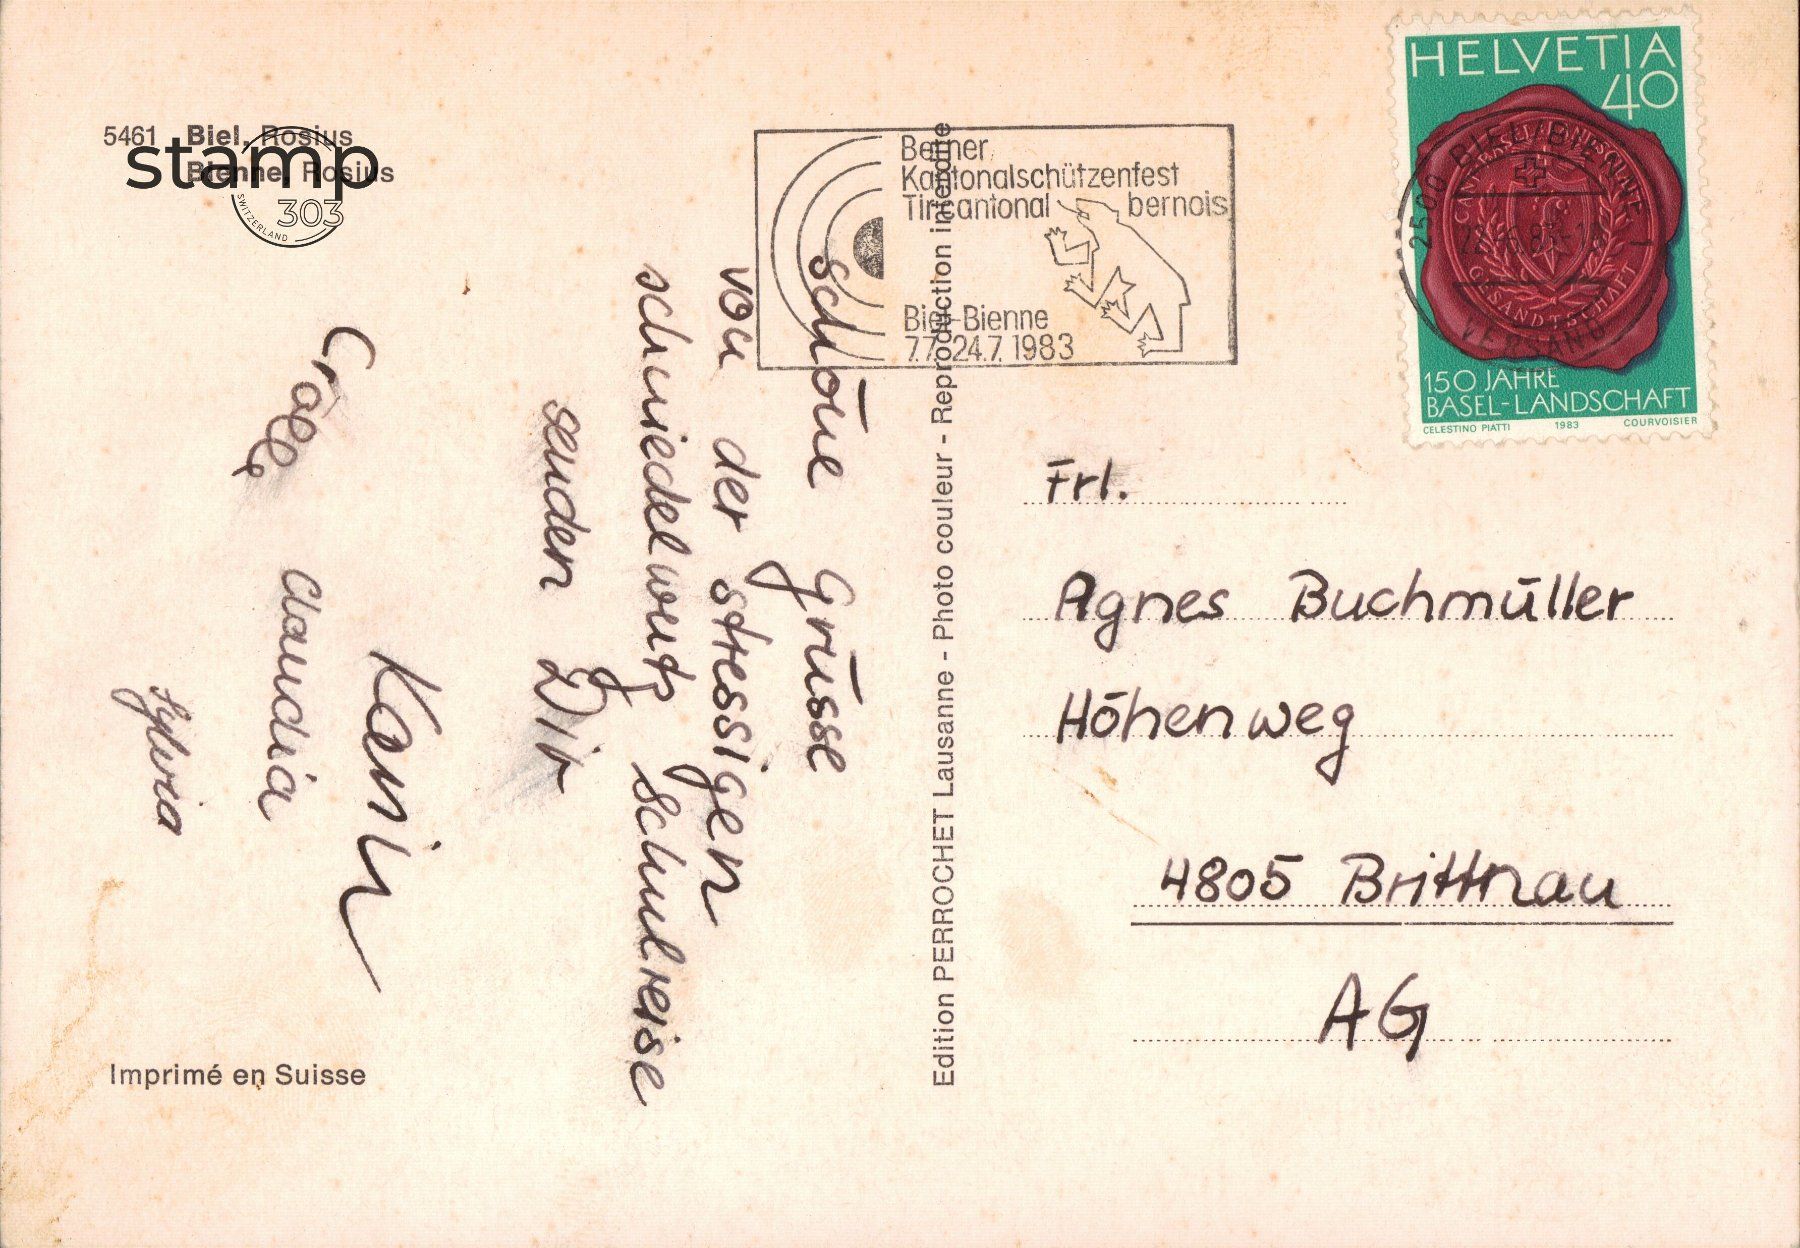 5461 Biel, Rosius
Bienne, Rosius
stamp
303
SWITZERLAND
Berner
Kantonalschützenfest
Tir cantonal bernois
Biel-Bienne
7.7.-24.7.1983
HELVETIA
40
2500 BIEL/BIENNE 1
VERSAND
GESANDTSCHAFT
150 JAHRE
BASEL-LANDSCHAFT
CELESTINO PIATTI 1983 COURVOISIER
schöne Grüsse
von der stressigen
schniedelwutz Schulreise
senden Dir
Karin
Claudia
Sylvia
Edition PERROCHET Lausanne - Photo couleur - Reproduction interdite
Frl.
Agnes Buchmüller
Höhenweg
4805 Brittnau
AG
Imprimé en Suisse